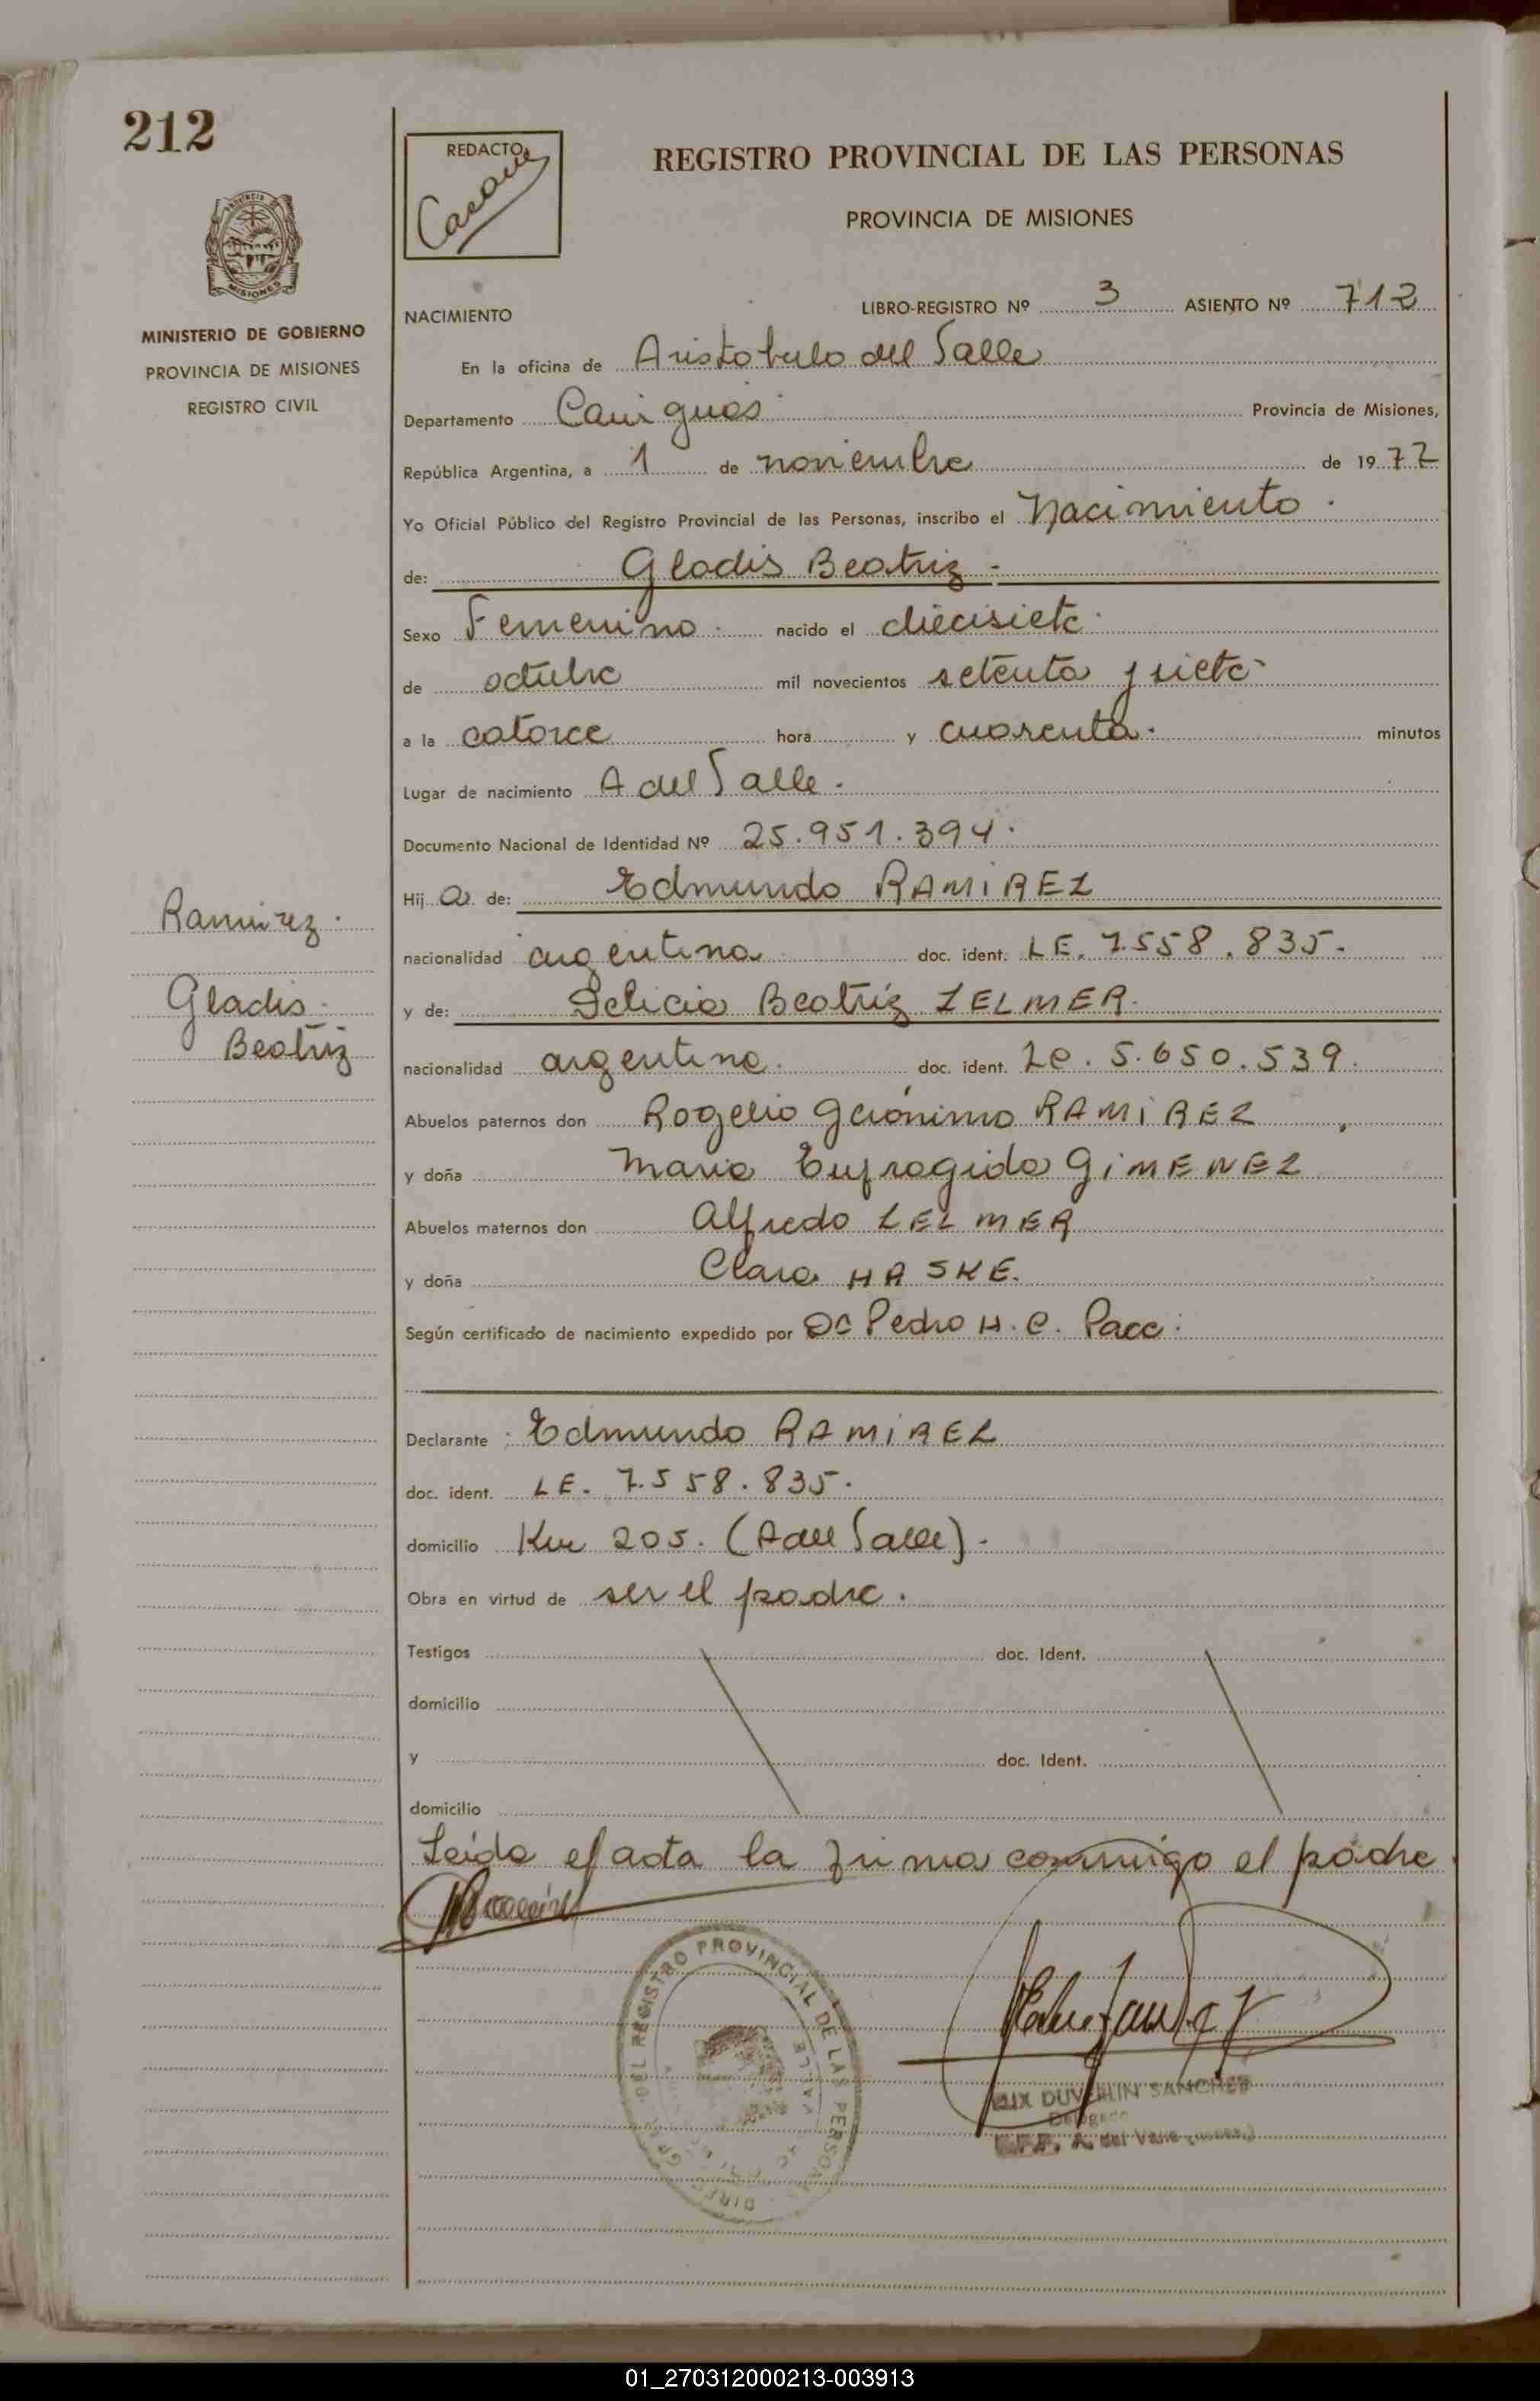 212
REDACTO
REGISTRO PROVINCIAL DE LAS PERSONAS
PROVINCIA DE MISIONES
MISIONES
MINISTERIO DE GOBIERNO
PROVINCIA DE MISIONES
REGISTRO CIVIL
NACIMIENTO
LIBRO-REGISTRO Nº 3 ASIENTO Nº 712
En la oficina de Aristobulo del Valle
Departamento Cainguás Provincia de Misiones,
República Argentina, a 1 de noviembre de 1977
Yo Oficial Público del Registro Provincial de las Personas, inscribo el Nacimiento.
de: Gladis Beatriz -
Sexo Femenino. nacido el diecisiete.
de octubre mil novecientos setenta y siete-
a la catorce hora y cuarenta. minutos
Lugar de nacimiento A del Valle.
Documento Nacional de Identidad Nº 25.951.394.
Hij a de: Edmundo RAMIREZ
nacionalidad argentina doc. ident. LE. 7.558.835.
y de: Delicia Beatriz ZELMER.
nacionalidad argentina. doc. ident. Lc. 5.650.539.
Abuelos paternos don Rogelio Gerónimo RAMIREZ
y doña Maria Eufragida GIMENEZ
Abuelos maternos don Alfredo ZELMER
y doña Clara HASKE.
Según certificado de nacimiento expedido por Dr Pedro H. C. Pace.
Ramirez.
Gladis
Beatriz
Declarante: Edmundo RAMIREZ
doc. ident. LE. 7.558.835.
domicilio Km 205. (A del Valle).
Obra en virtud de ser el padre.
Testigos doc. Ident.
domicilio
y doc. Ident.
domicilio
Leida el acta la firma conmigo el padre
DEL REGISTRO PROVINCIAL DE LAS PERSONAS
DUVERLIN SANCHEZ
Delegado
A. del Valle
01_270312000213-003913